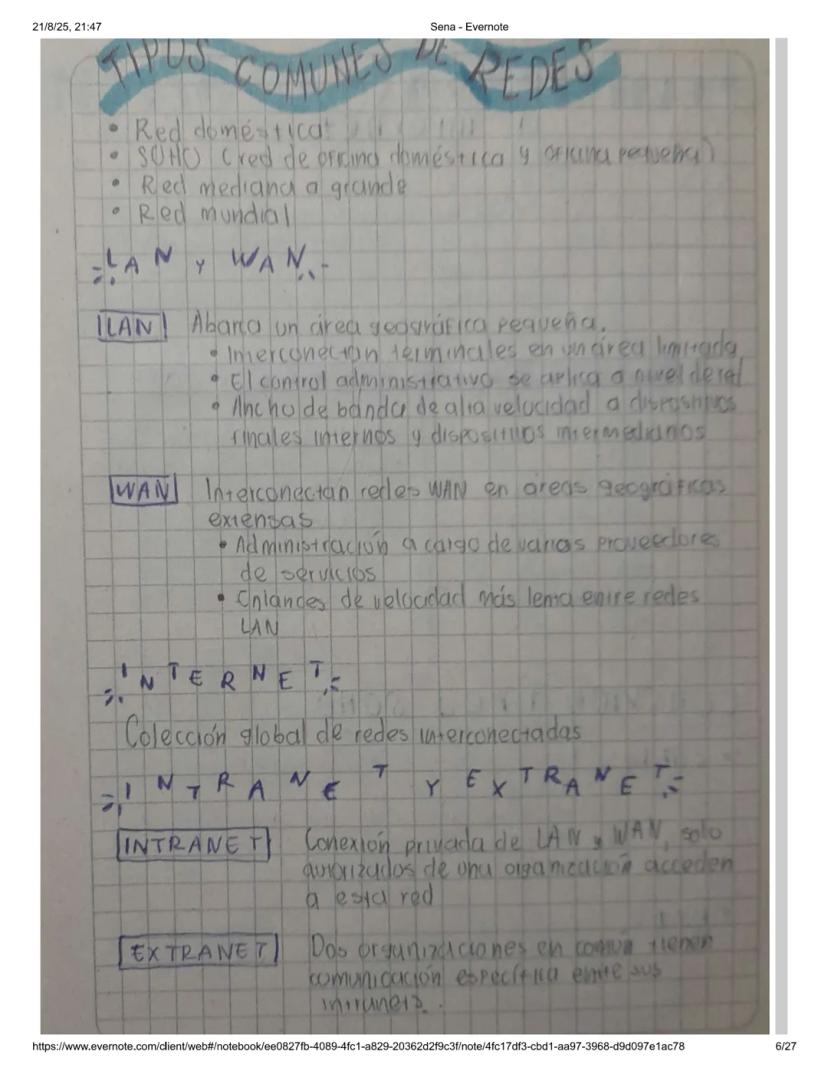 21/8/25, 21:47
Sena - Evernote
TIPOS COMUNES DE REDES
• Red doméstica
• SOHO (red de oficina doméstica y oficina pequeña)
• Red mediana a grande
• Red mundial
LAN Y WAN
LAN Abarca un área geográfica pequeña.
• Interconectan terminales en un área limitada
• El control administrativo se aplica a nivel de red
• Ancho de banda de alta velocidad a dispositivos
finales internos y dispositivos intermediarios
WAN Interconectan redes WAN en áreas geográficas
extensas
• Administración a cargo de varios proveedores
de servicios
• Enlances de velocidad más lenta entre redes
LAN
INTERNET
Colección global de redes interconectadas
INTRANET Y EXTRANET
INTRANET Conexión privada de LAN y WAN, solo
autorizados de una organización acceden
a esta red
EXTRANET Dos organizaciones en común tienen
comunicación específica entre sus
intranets.
https://www.evernote.com/client/web#/notebook/ee0827fb-4089-4fc1-a829-20362d2f9c3f/note/4fc17df3-cbd1-aa97-3968-d9d097e1ac78
6/27